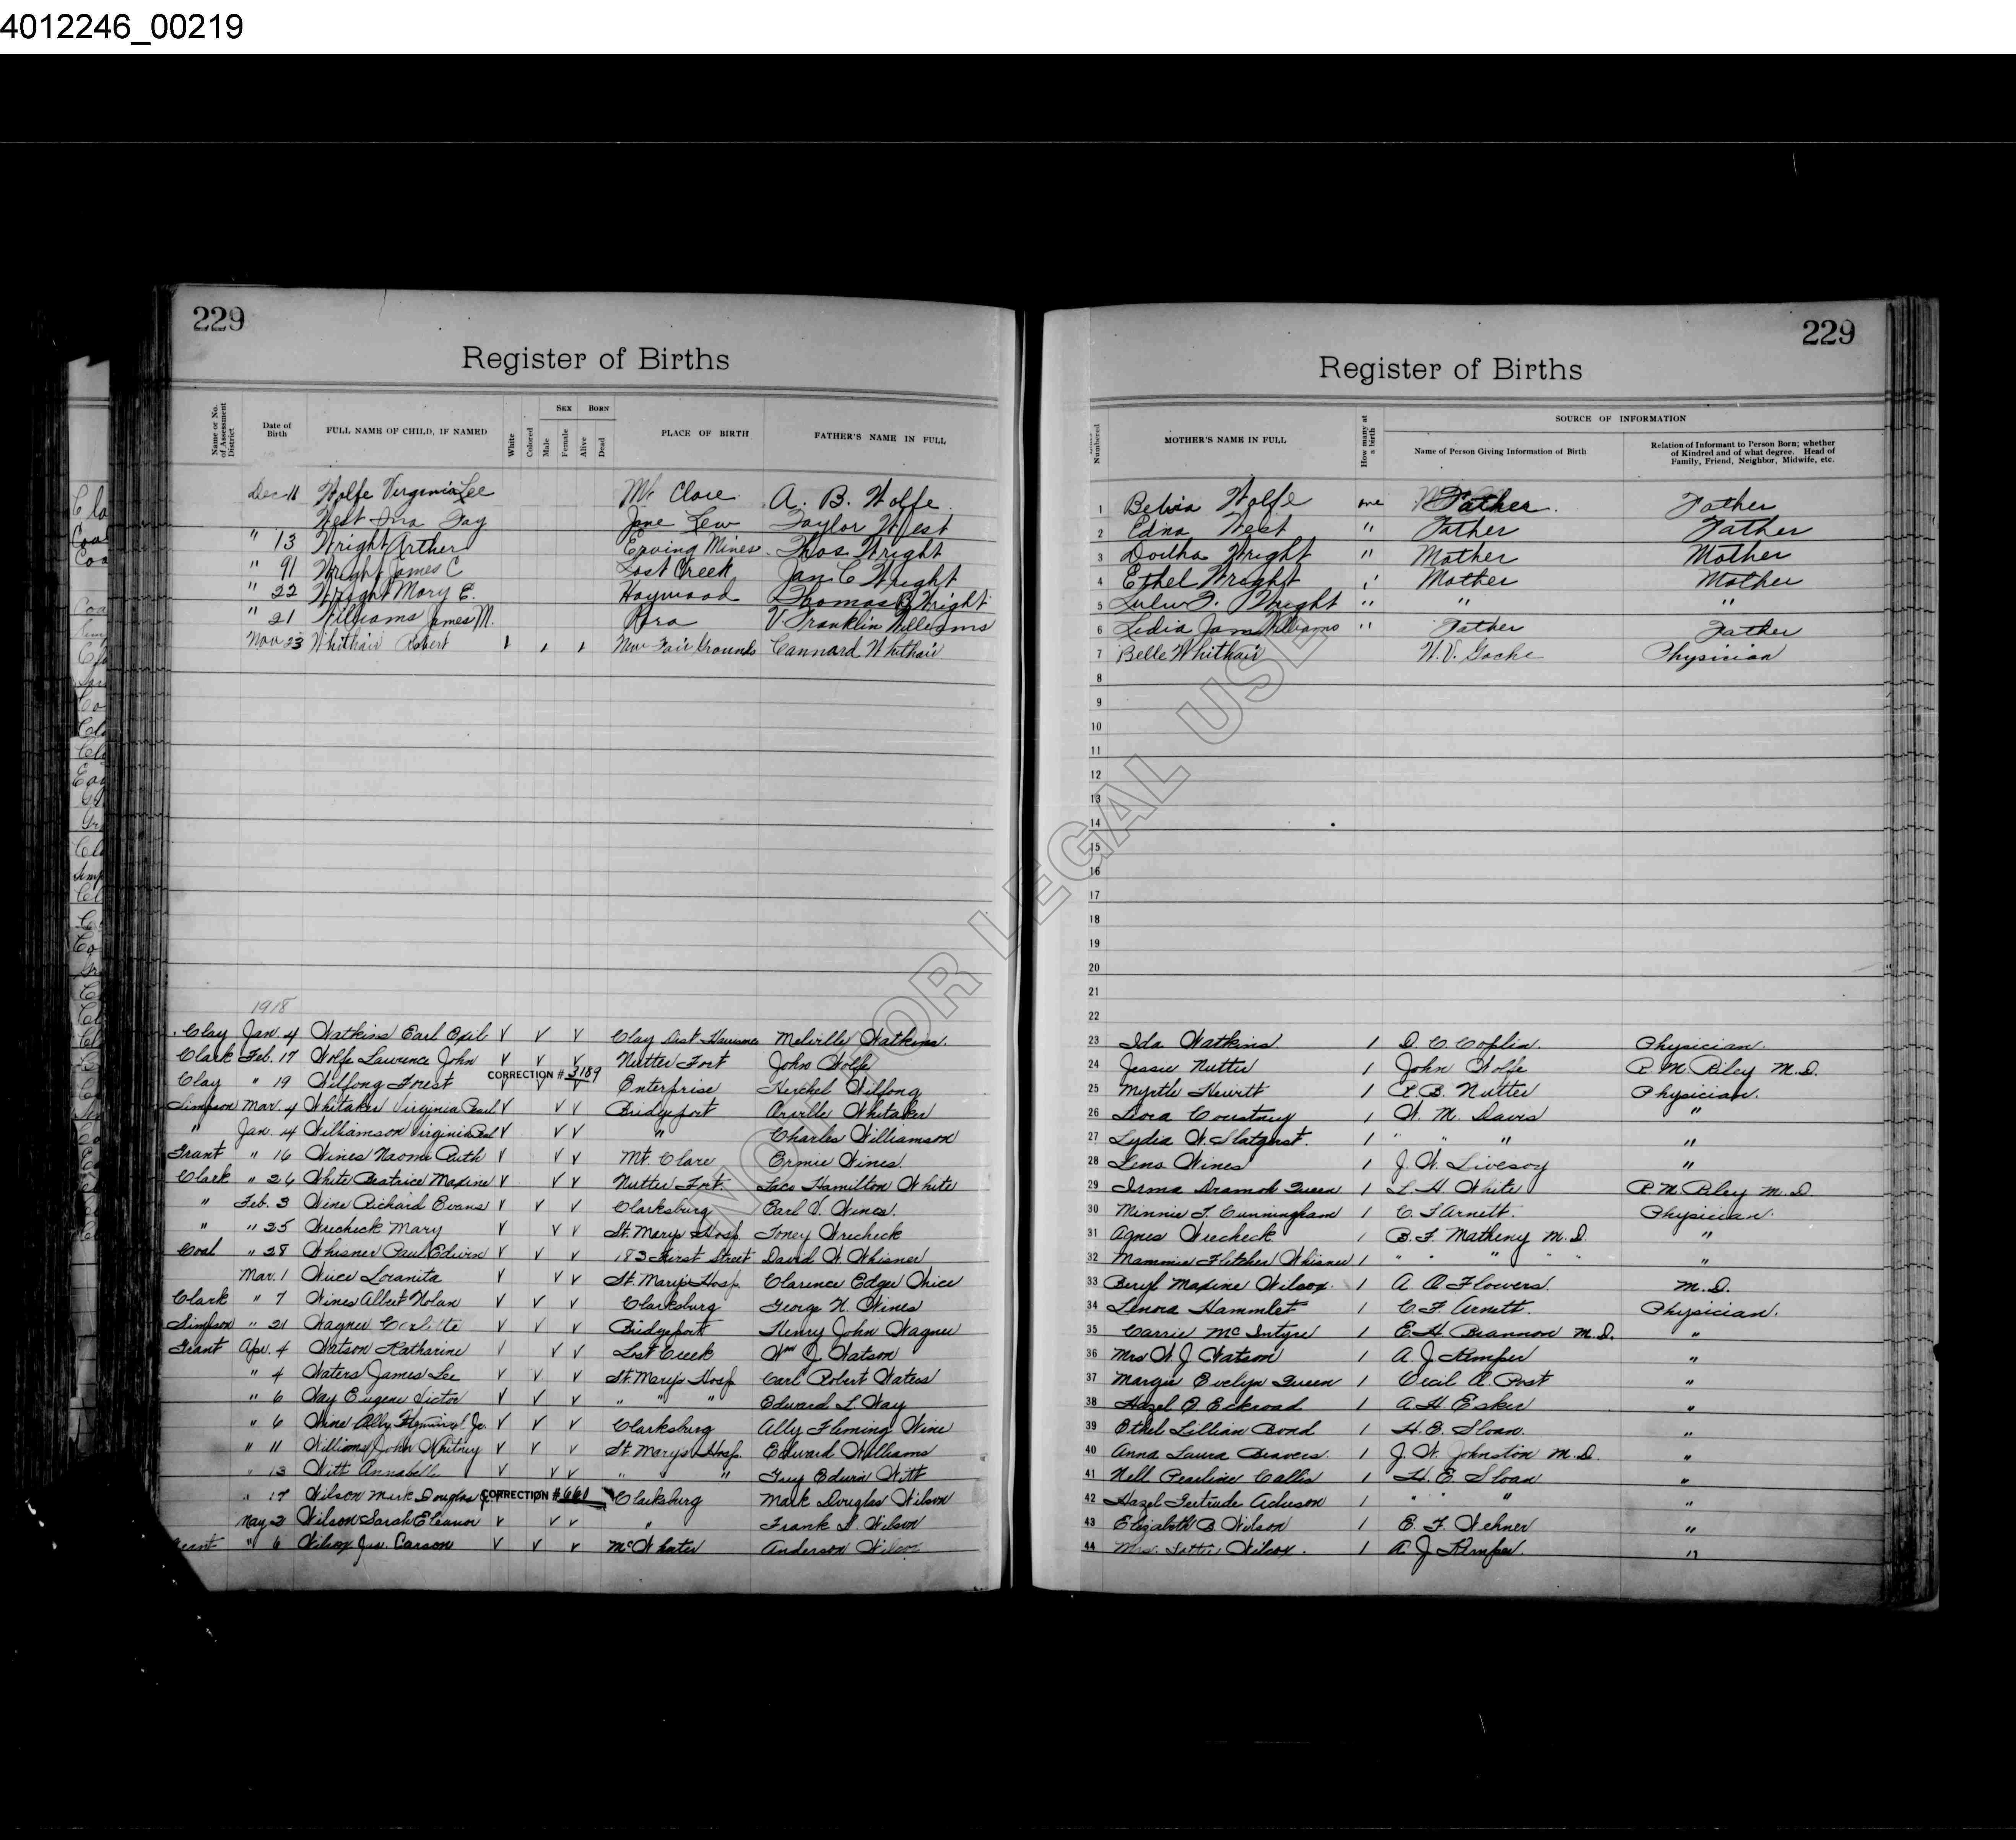 4012246_00219
229
Register of Births
Name or No. of Assessment District
Date of Birth
FULL NAME OF CHILD, IF NAMED
White
Colored
SEX
Male
Female
BORN
Alive
Dead
PLACE OF BIRTH
FATHER'S NAME IN FULL
Dec 11 Wolfe Virginia Lee Mt Clare A. B. Wolfe
West Ina Fay Jane Lew Taylor West
" 13 Wright Arther Erving Mines Thos. Wright
" 91 Wright James C Lost Creek Jas. C Wright
" 22 Wright Mary E. Haywood Thomas B Wright
" 21 Williams James M. V. Franklin Williams
Nov 23 Whithair Robert New Fair Grounds Cannard Whithair
1918
Clay Jan. 4 Watkins Earl V V V Clay Dist Melville Watkins
Clark Feb. 17 Wolfe Lawrence John V V V Nutter Fort John Wolfe
Clay " 19 Wilfong Forest CORRECTION # 3189 Enterprise Herchel Wilfong
Simpson Mar. 4 Whitaker Virginia Pearl V V V Bridgeport Arville Whitaker
" Jan. 14 Williamson Virginia V V V " Charles Williamson
Grant " 16 Wines Naomi Ruth V V V Mt. Clare Ermie Wines
Clark " 26 White Beatrice Maxine V V V Nutter Fort. Hamilton White
" Feb. 3 Wine Richard Evans V V V Clarksburg Earl
" " 25 Wrecheck Mary V V V St. Marys Hosp. Toney Wrecheck
Coal " 28 Whisner Paul Edwin V V V 183 First Street David W. Whisner
Mar. 1 V V V St. Mary's Hosp. Clarence Edgar
Clark " 7 Wines Albert Nolan V V V Clarksburg George W. Wines
Simpson " 21 Wagner V V V Bridgeport Henry John Wagner
Grant Apr. 4 Watson Katharine V V V Lost Creek Wm J. Watson
" 4 Waters James Lee V V V St Mary's Hosp Carl Robert Waters
" 6 Way Eugene Victor V V V " " " Edward L Way
" 6 Wine Ally Fleming Jr. V V V Clarksburg Ally Fleming Wine
" 11 Williams John Whitney V V V St. Mary's Hosp. Edward Williams
" 13 Witt Annabelle V V V " " " Guy Edwin Witt
" 17 Wilson Mark Douglas CORRECTION # 661 Clarksburg Mark Douglas Wilson
May 2 Wilson Sarah Eleanor V V V " Frank Wilson
Grant " 6 Wilcox Jas. Carson V V V McWhorter Anderson Wilcox
229
Register of Births
Numbered
MOTHER'S NAME IN FULL
How many at a birth
SOURCE OF INFORMATION
Name of Person Giving Information of Birth
Relation of Informant to Person Born; whether of Kindred and of what degree. Head of Family, Friend, Neighbor, Midwife, etc.
1 Wolfe one Father. Father
2 Edna West " Father Father
3 Wright " Mother Mother
4 Ethel Wright " Mother Mother
5 Wright " " "
6 Lydia Jane Williams " Father Father
7 Belle Whithair Physician
8
9
10
11
12
13
14
15
16
17
18
19
20
21
22
23 Ida Watkins 1 D. C. Coplin. Physician.
24 Jessie Nutter 1 John Wolfe R. M. Riley M.D.
25 Myrtle Hewitt 1 E. B. Nutter Physician.
26 Courtney 1 W. M. Davis "
27 Lydia W. 1 " " " "
28 Lena Wines 1 J. W. Livesay "
29 Irma Queen 1 L. H. White R. M. Riley M.D.
30 Minnie F. Cunningham 1 C. F. Arnett. Physician.
31 Agnes Wrecheck 1 B. F. Matheny M.D. "
32 Mammie Fletcher Whisner 1 " " " " "
33 Beryl Maxine Wilcox. 1 A. O. Flowers. M.D.
34 Lenora Hammlet 1 C. F. Arnett. Physician.
35 Carrie McIntyre 1 E. H. Brannon M.D. "
36 Mrs W. J. Watson 1 A. J. Kemper "
37 Margie Evelyn Queen 1 Cecil O. Post "
38 Hazel Eckroad 1 A. H. Esker "
39 Ethel Lillian Bond 1 H. E. Sloan. "
40 Anna Laura Beavers 1 J. W. Johnston M.D. "
41 Nell Pearline Callis 1 H. E. Sloan "
42 Hazel Gertrude Acheson 1 " " " "
43 Elizabeth B. Wilson 1 E. F. Wehner "
44 Mrs. Wilcox. 1 A. J. Kemper. "
NOT FOR LEGAL USE